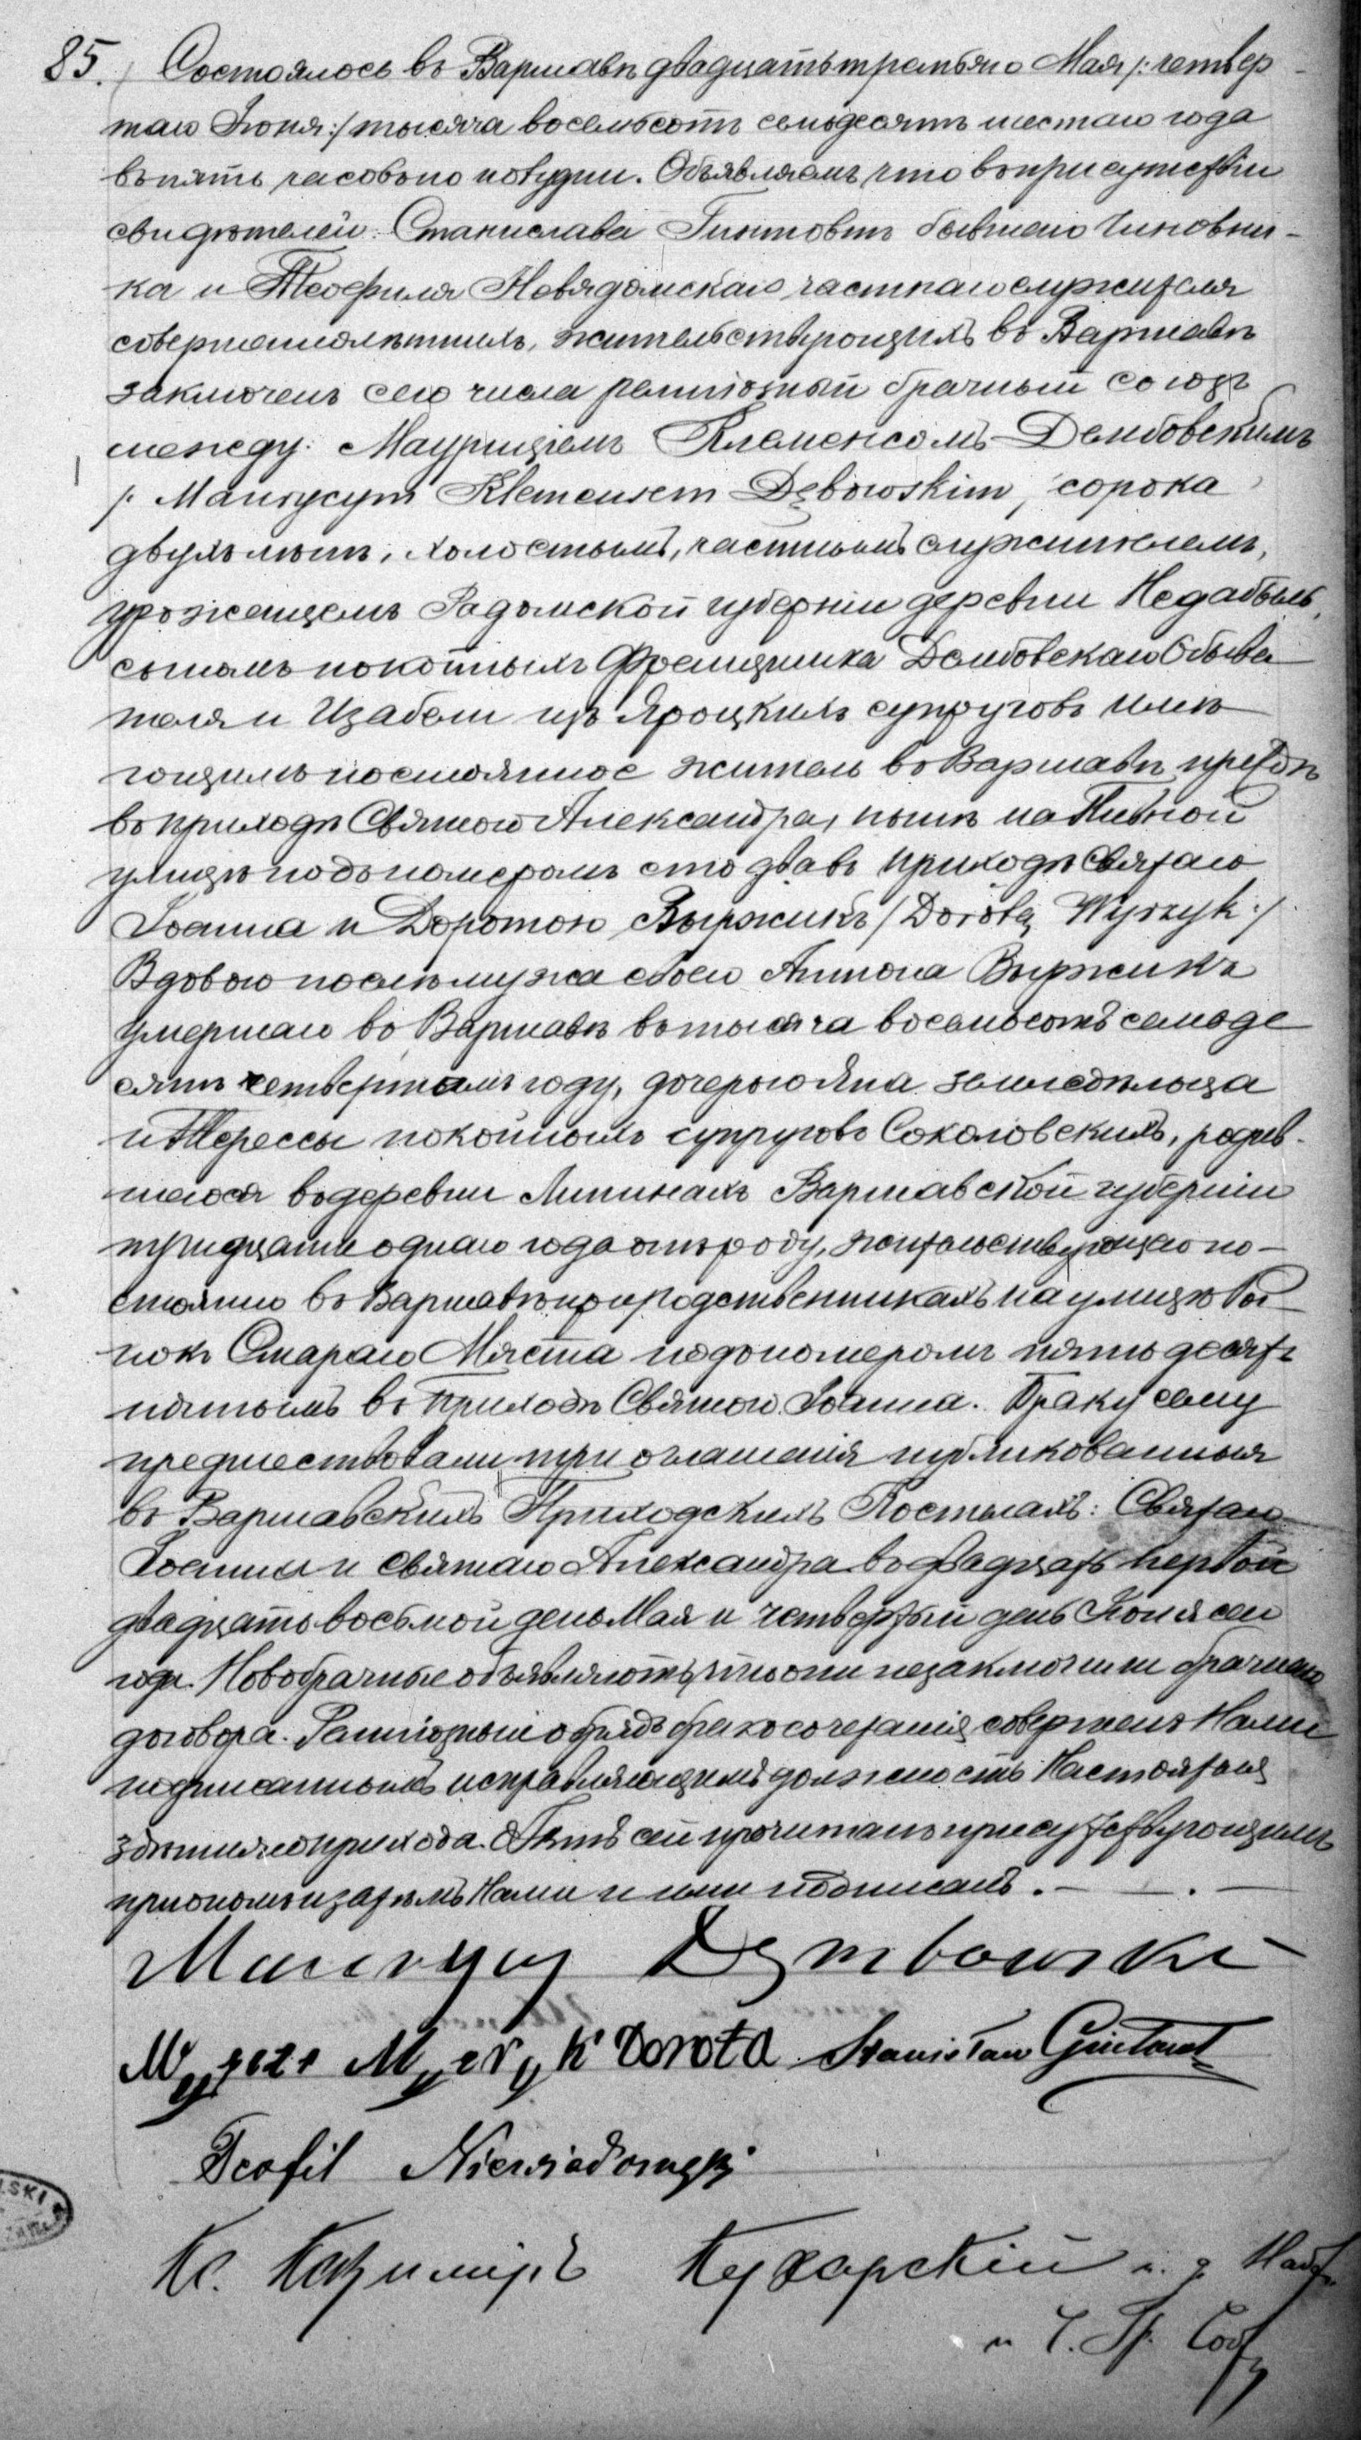 85. Состоялось въ Варшавѣ двадцать третьяго Мая /: четвер-
таго Іюня :/ тысяча восемьсотъ семьдесятъ шестаго года
въ пять часовъ по полудни. Объявляемъ, что въ присутствіи
свидѣтелей: Станислава Гинтовтъ бывшаго Чиновни-
ка и Теофиля Невядомскаго частнаго служителя
совершеннолѣтнихъ, жительствующихъ въ Варшавѣ
заключенъ сего числа религіозный брачный союзъ
между: Маурицiемъ Клеменсомъ Дембовскимъ
/: Maurycym Klemensem Dębowskim, сорока
двухъ лѣтъ, холостымъ, частнымъ служителемъ,
урожденцемъ Радомской губерніи деревни Недабыль,
сыномъ покойныхъ Францишка Дембовскаго Обыва
теля и Изабели изъ Яроцкихъ супруговъ имѣ
ющимъ постоянное жители въ Варшавѣ предъ
въ приходѣ Святаго Александра, нынѣ на Пивной
улицѣ подъ номеромъ сто два въ приходѣ Святаго
Іоанна и Доротою Выржикъ /: Dorotą Wyrzyk :/
Вдовою послѣ мужа своего Антона Выржикъ
умершаго въ Варшавѣ въ тысяча восемьсотъ семьде
сятъ четвертомъ году, дочерью Яна земледѣльца
и Терессы покойныхъ супруговъ Соколовскихъ, родив-
шеюся въ деревни Липинахъ Варшавской губерніи
тридцати одного года отъ роду, жительствующею по-
стоянно въ Варшавѣ при родственникахъ на улицѣ Ры-
нокъ Стараго Мяста подъ номеромъ пятьдесятъ
пятымъ въ приходѣ Святаго Іоанна. Браку сему
предшествовали три оглашенія публикованныя
въ Варшавскихъ Приходскихъ Костелахъ: Святаго
Іоанна и Святаго Александра въ двадцать первой
двадцать восьмой день Мая и четвертый день Іюня сего
года. Новобрачные объявляютъ, что они незаключили брачнаго
договора. Религіозный обрядъ бракосочетанія совершенъ Нами
подписаннымъ исправляющимъ должность Настоятеля
здѣшняго прихода. Актъ сей прочитанъ присутствующимъ
при ономъ и затѣмъ Нами и ими подписанъ.
Maurycy Dembowski
Dorota Stanisław Gintowt
Teofil Niewiadomski
Кс. Казимиръ Кухарскій и. д. Наст.
и Ч. Гр. Сост